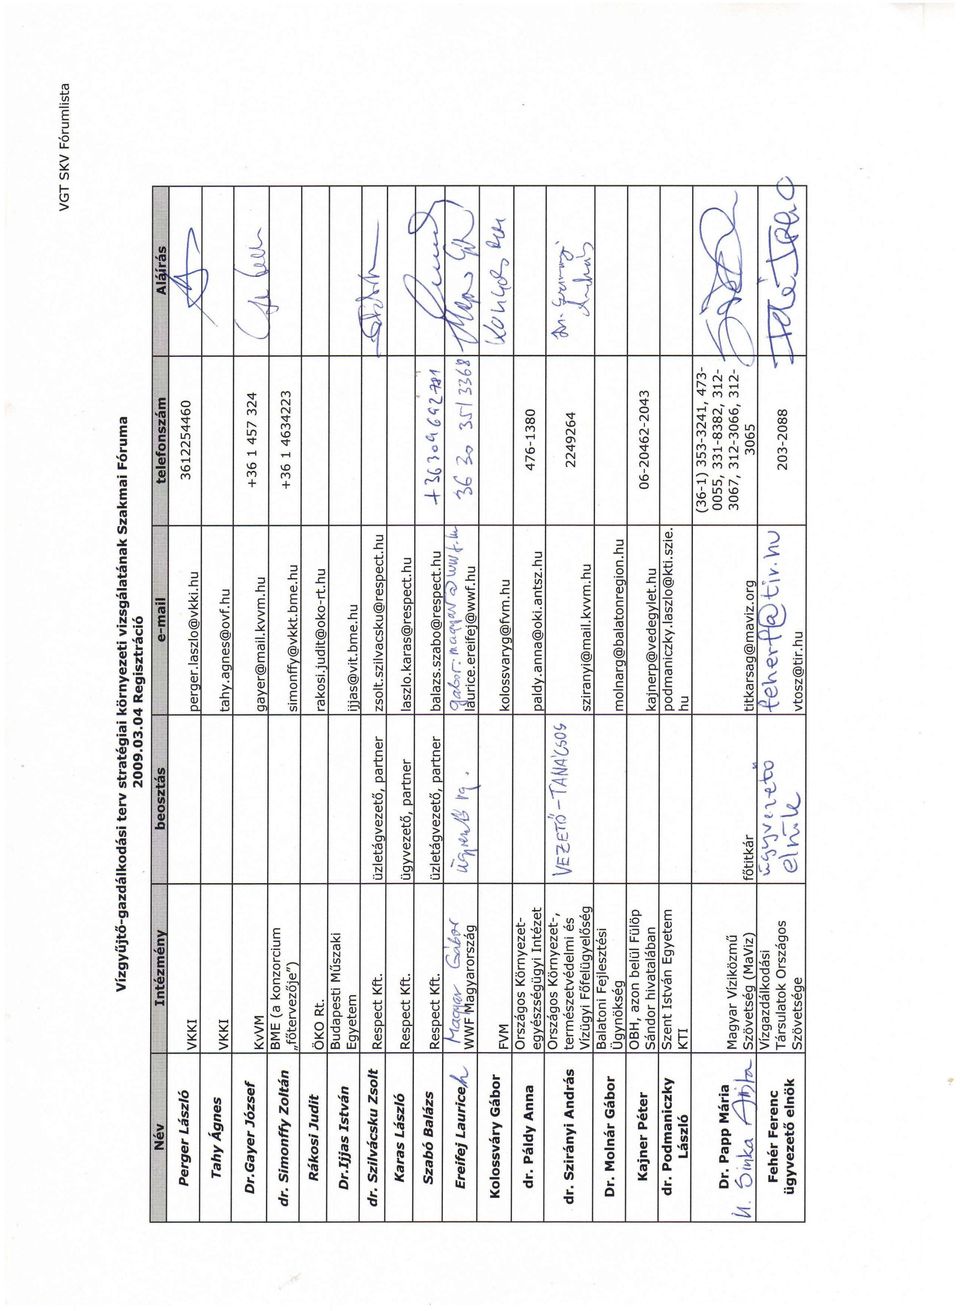 VGT SKV Fórumlista
Vízgyűjtő-gazdálkodási terv stratégiai környezeti vizsgálatának Szakmai Fóruma
2009.03.04 Regisztráció
Név Intézmény beosztás e-mail telefonszám Aláírás
Perger László VKKI perger.laszlo@vkki.hu 3612254460
Tahy Ágnes VKKI tahy.agnes@ovf.hu
Dr.Gayer József KVVM gayer@mail.kvvm.hu +36 1 457 324
dr. Simonffy Zoltán BME (a konzorcium simonffy@vkkt.bme.hu +36 1 4634223
„főtervezője")
Rákosi Judit ÖKO Rt. rakosi.judit@oko-rt.hu
Dr.Ijjas István Budapesti Műszaki ijjas@vit.bme.hu
Egyetem
dr. Szilvácsku Zsolt Respect Kft. üzletágvezető, partner zsolt.szilvacsku@respect.hu
Karas László Respect Kft. ügyvezető, partner laszlo.karas@respect.hu
Szabó Balázs Respect Kft. üzletágvezető, partner balazs.szabo@respect.hu +36309692781
Magyar Gábor gabor.magyar@wwf.hu
Ereifej Laurice WWF Magyarország ügyvezető ig. laurice.ereifej@wwf.hu 36 30 351 3368
Kolossváry Gábor FVM kolossvaryg@fvm.hu
dr. Páldy Anna Országos Környezet- paldy.anna@oki.antsz.hu 476-1380
egyészségügyi Intézet
dr. Szirányi András Országos Környezet-, VEZETŐ-TANÁCSOS sziranyi@mail.kvvm.hu 2249264
természetvédelmi és
Vízügyi Főfelügyelőség
Dr. Molnár Gábor Balatoni Fejlesztési molnarg@balatonregion.hu
Ügynökség
Kajner Péter OBH, azon belül Fülöp kajnerp@vedegylet.hu 06-20462-2043
Sándor hivatalában
dr. Podmaniczky Szent István Egyetem podmaniczky.laszlo@kti.szie.
László KTI hu
Dr. Papp Mária Magyar Víziközmű főtitkár titkarsag@maviz.org (36-1) 353-3241, 473-
h. Sinka Attila Szövetség (MaViz) 0055, 331-8382, 312-
3067, 312-3066, 312-
3065
Fehér Ferenc Vízgazdálkodási ügyvezető feherf@tir.hu 203-2088
ügyvezető elnök Társulatok Országos elnök vtosz@tir.hu
Szövetsége